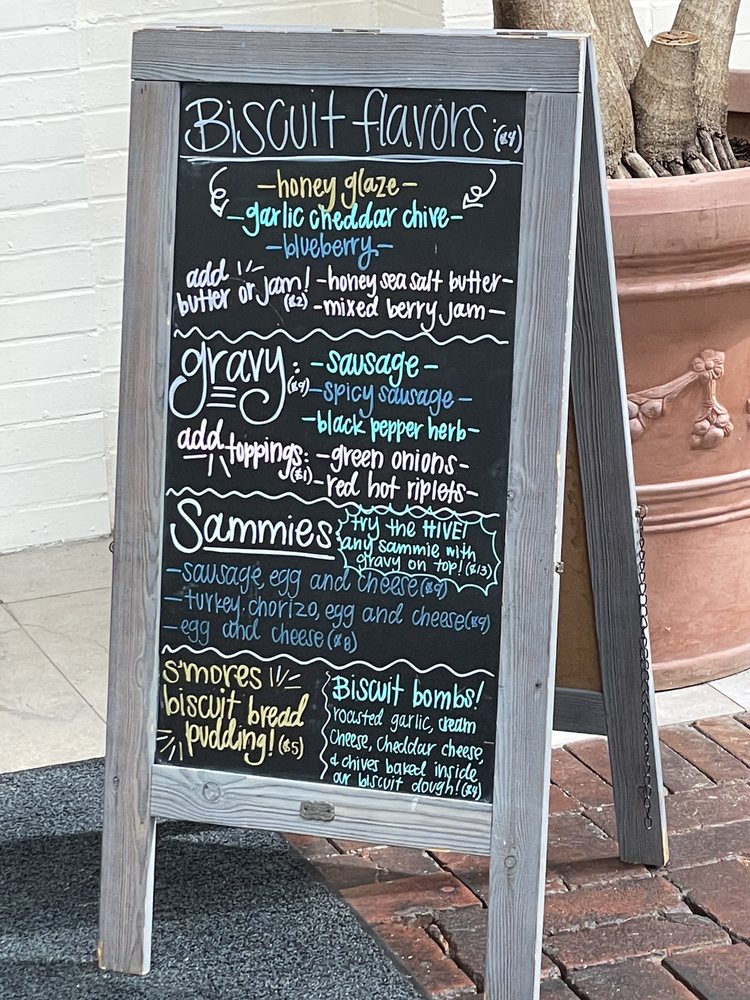 Biscuit flavors: ($4)
-honey glaze-
-garlic cheddar chive-
-blueberry-
add butter or jam! ($2)
-honey sea salt butter-
-mixed berry jam-
gravy: ($4)
-sausage-
-spicy sausage-
-black pepper herb-
add toppings: ($1)
-green onions-
-red hot riplets-
Sammies
try the HIVE!
any sammie with
gravy on top! ($13)
-sausage, egg and cheese ($9)
-turkey chorizo, egg and cheese ($9)
-egg and cheese ($8)
s'mores
biscuit bread
pudding! ($5)
Biscuit bombs!
roasted garlic, cream
cheese, cheddar cheese,
& chives baked inside
our biscuit dough! ($4)